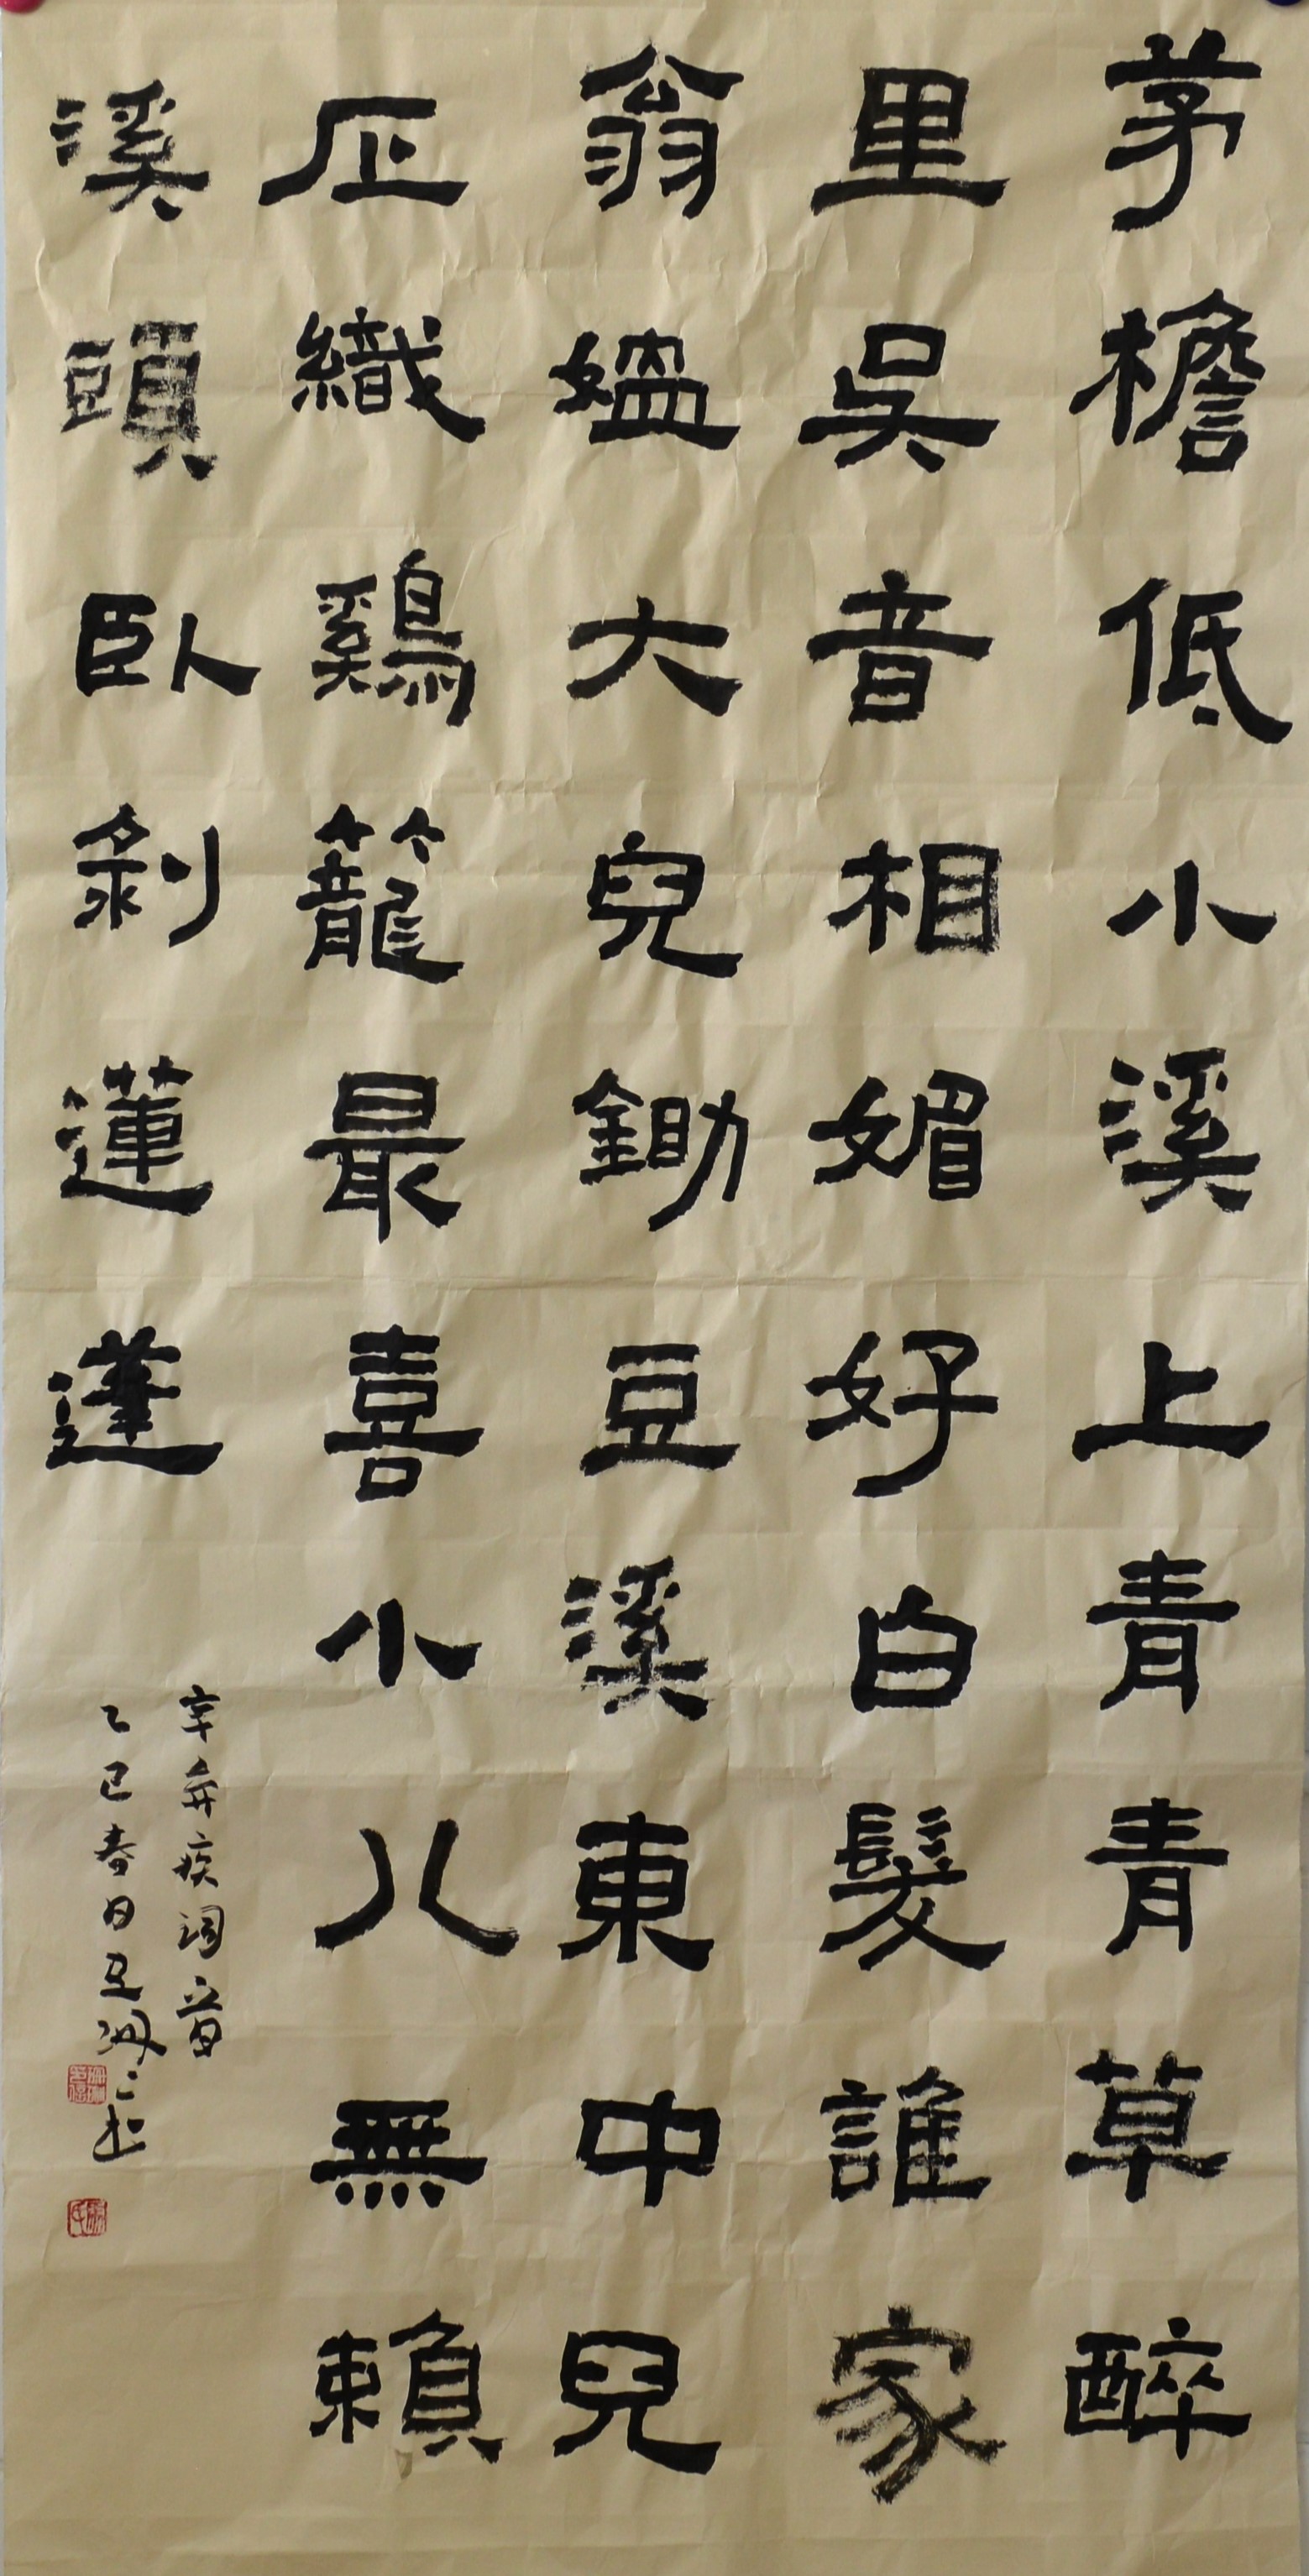 茅檐低小溪上青青草醉
里吳音相媚好白髮誰家
翁媼大兒鋤豆溪東中兒
正織鷄籠最喜小儿無賴
溪頭臥剝蓮蓬
辛弃疾詞一首
乙巳春日